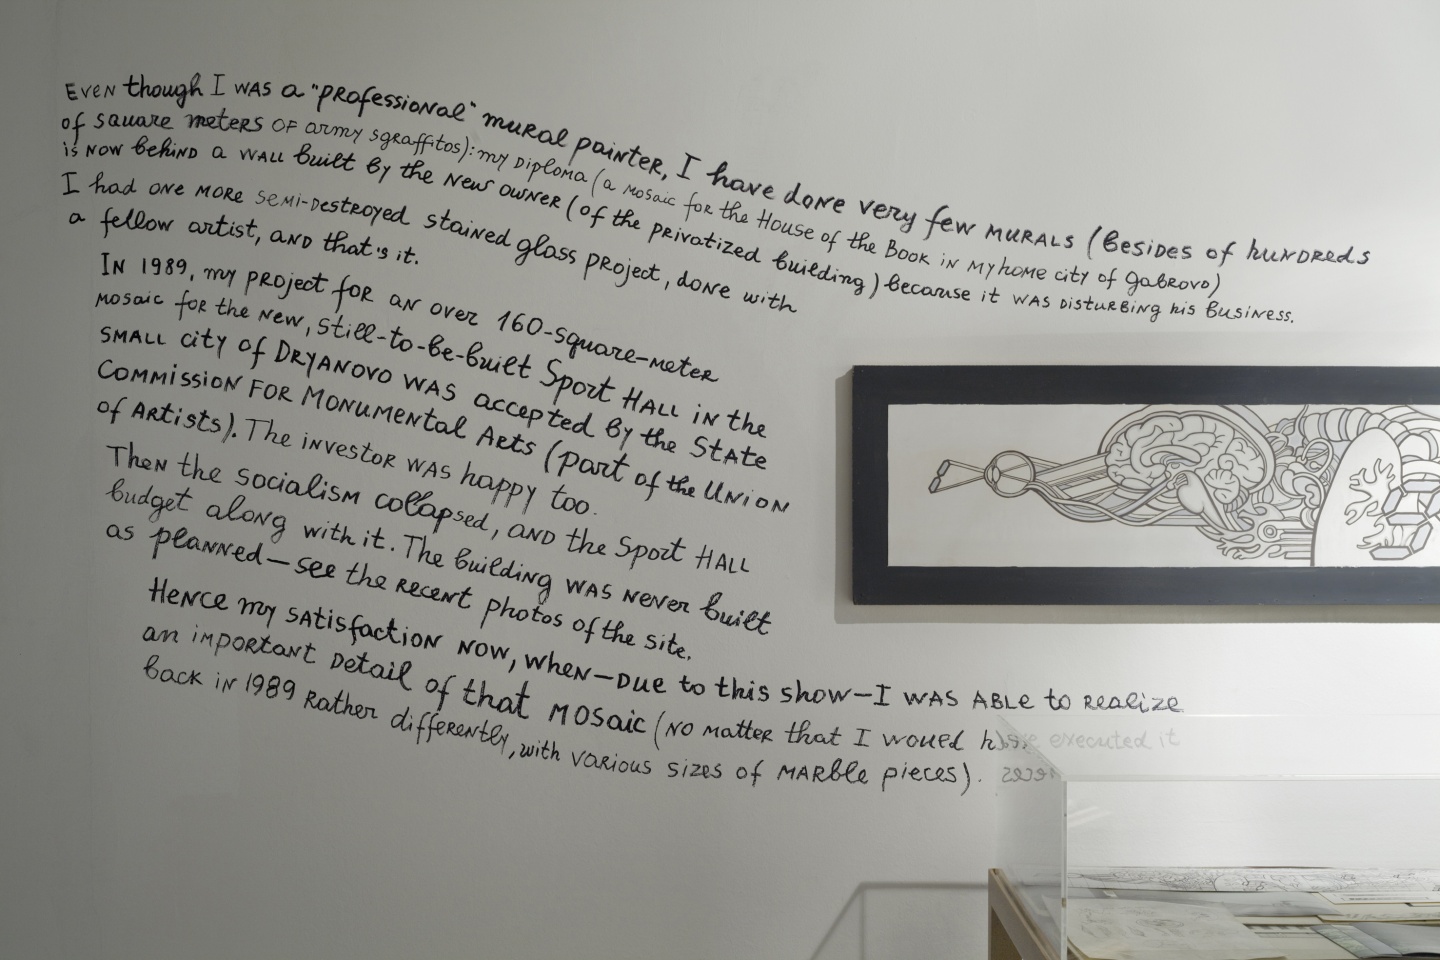 Even though I was a "professional" mural painter, I have done very few murals (besides of hundreds
of square meters of army sgraffitos): my diploma (a mosaic for the House of the Book in my home city of Gabrovo)
is now behind a wall built by the new owner (of the privatized building) because it was disturbing his business.
I had one more semi-destroyed stained glass project, done with
a fellow artist, and that's it.
In 1989, my project for an over 160-square-meter
mosaic for the new, still-to-be-built Sport Hall in the
small city of Dryanovo was accepted by the State
Commission for Monumental Arts (part of the Union
of Artists). The investor was happy too.
Then the socialism collapsed, and the Sport Hall
budget along with it. The building was never built
as planned—see the recent photos of the site.
Hence my satisfaction now, when—due to this show—I was able to realize
an important detail of that mosaic (no matter that I would have executed it
back in 1989 rather differently, with various sizes of marble pieces).